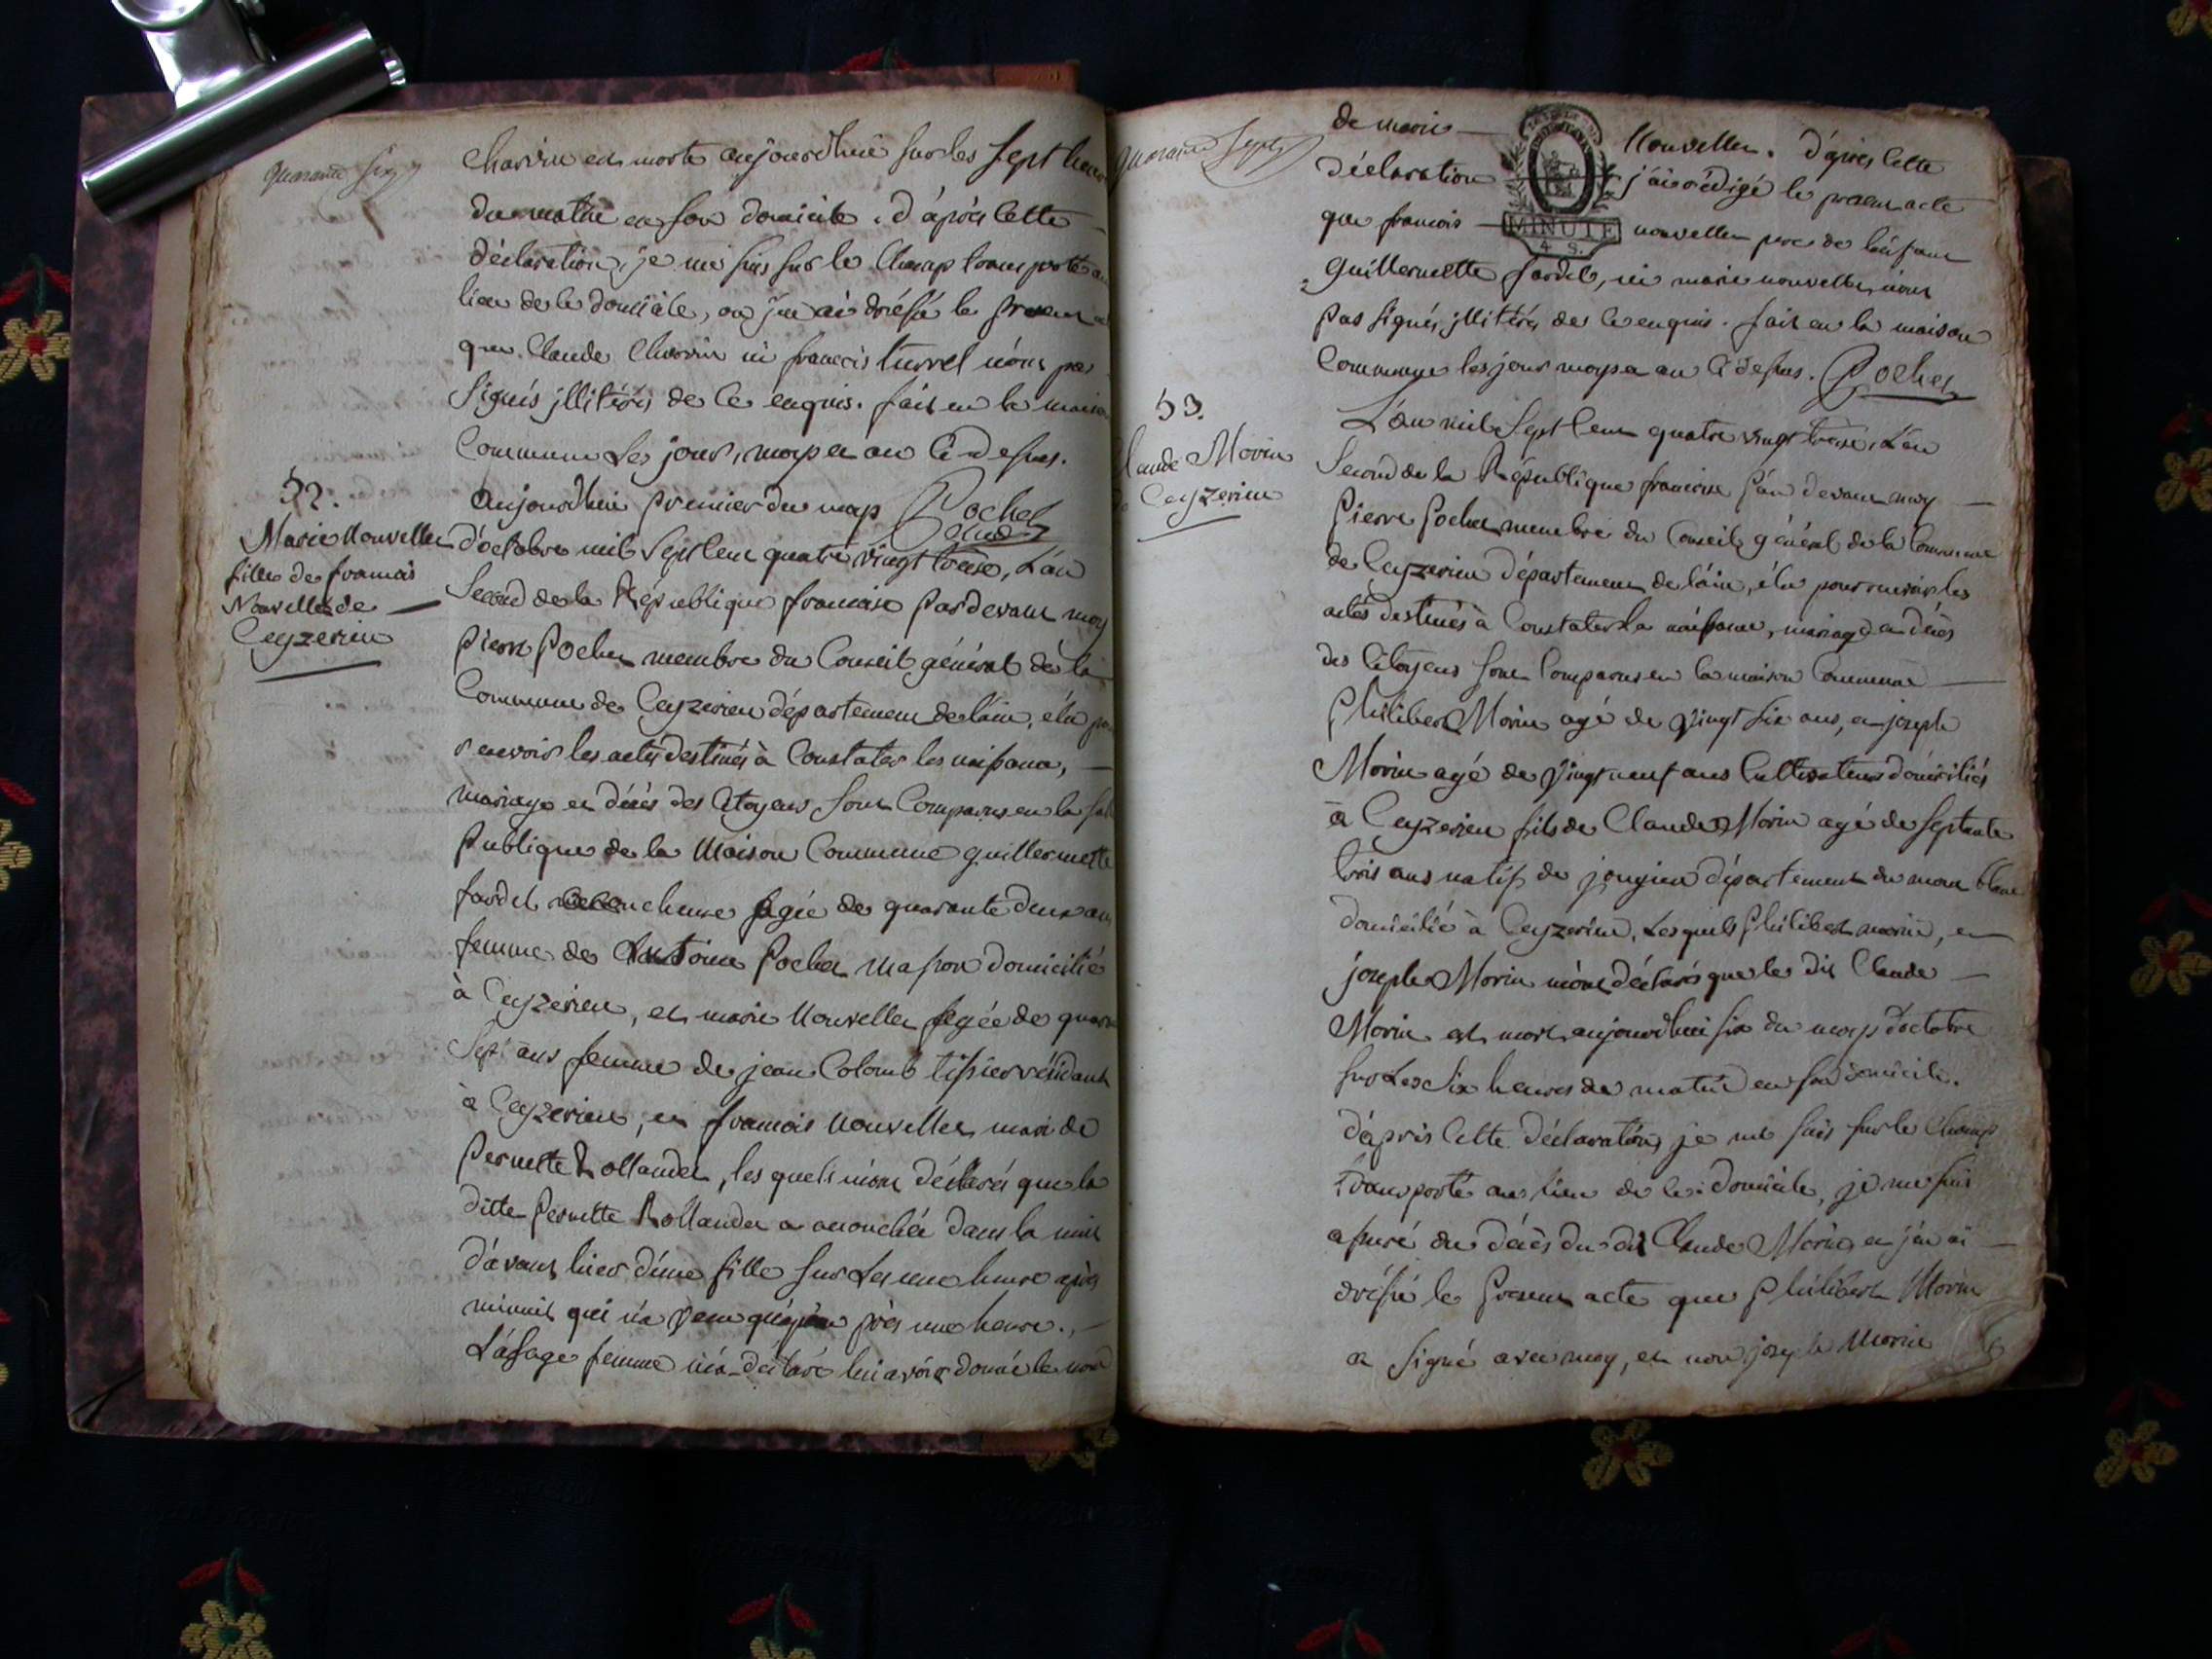 quarante six
charvin est morte aujourdhui sur les sept heures
du matin en son domicile. d'après cette
déclaration, je me suis sur le champ transporté au
lieu de ce domicile, où j'en ai drésé le présent
que Claude Charvin ni francois turrel n'ont pas
signés illitérés de ce enquis. fait en la maison
Commune les jour, moys et an Ci-desus.
Pochet
52.
Marie Nouvellet
fille de francois
Nouvellet de
Ceyzerieu
aujourdhui premier du moys
d'octobre mil Sept Cent quatre vingt treise, L'an
Second de la République francaise par devant moy
pierre pochet membre du Conseil général de la
Commune de Ceyzerieu département de l'ain, élu
recevoir les actes destinés à Constater les naisance,
mariage et décés des Citoyens sont Comparus en la
publique de la Maison Commune guillermette
fardel agée de quarante deux ans
femme de Antoine Pochet mason domicilié
à Ceyzerieu, et marie Nouvellet agée de
Sept ans femme de jean Colomb tisier résidant
à Ceyzerieu, et francois Nouvellet mari de
pernette Rollandet, les quels m'ont déclarés que la
ditte pernette Rollandet a acouchée dans la nuit
d'avant hier d'une fille sur les une heure après
minuit qui n'a près une heure.
La sage femme m'a déclaré lui avoir donné le nom
quarante Sept
de marie Nouvellet. d'après cette
déclaration j'ai rédigé le present acte
que francois nouvellet pere de l'enfant
guillermette fardel, ni marie nouvellet n'ont
pas signés, illitérés de ce enquis. fait en la maison
Commune les jour moys et an Ci desus. Pochet
MINUTE
4 S.
53.
Claude Morin
de Ceyzerieu
L'an mil Sept Cent quatre vingt treise, L'an
Second de la République francoise par devant moy
Pierre Pochet membre du Conseil général de la Commune
de Ceyzerieu département de l'ain, élu pour recevoir les
actes destinés à Constater la naisance, mariage et décés
des Citoyens sont Comparus en la maison Commune
Philibert Morin agé de vingt six ans, et joseph
Morin agé de vingt neuf ans Cultivateurs domiciliés
à Ceyzerieu fils de Claude Morin agé de septante
trois ans natif de jongieu département du mont blanc
domicilié à Ceyzerieu, Lesquels Philibert morin, et
joseph Morin m'ont déclarés que le dit Claude
Morin est mort aujourdhui six du moys d'octobre
sur Les six heures de matin en son domicile.
d'après Cette déclaration je me suis sur le Champ
transporté au lieu de ce domicile, je me suis
asuré du décès du dit Claude Morin, et j'en ai
drésé le present acte que Philibert Morin
a signé avec moy, et non joseph Morin